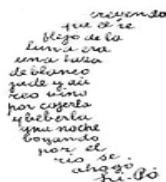 creyendo
que el re
flejo de la
luna era
una taza
de blanco
jade y áu
reo vino
por cogerla
y beberla
una noche
bogando
por el
rio se
ahogó
Li-Pó